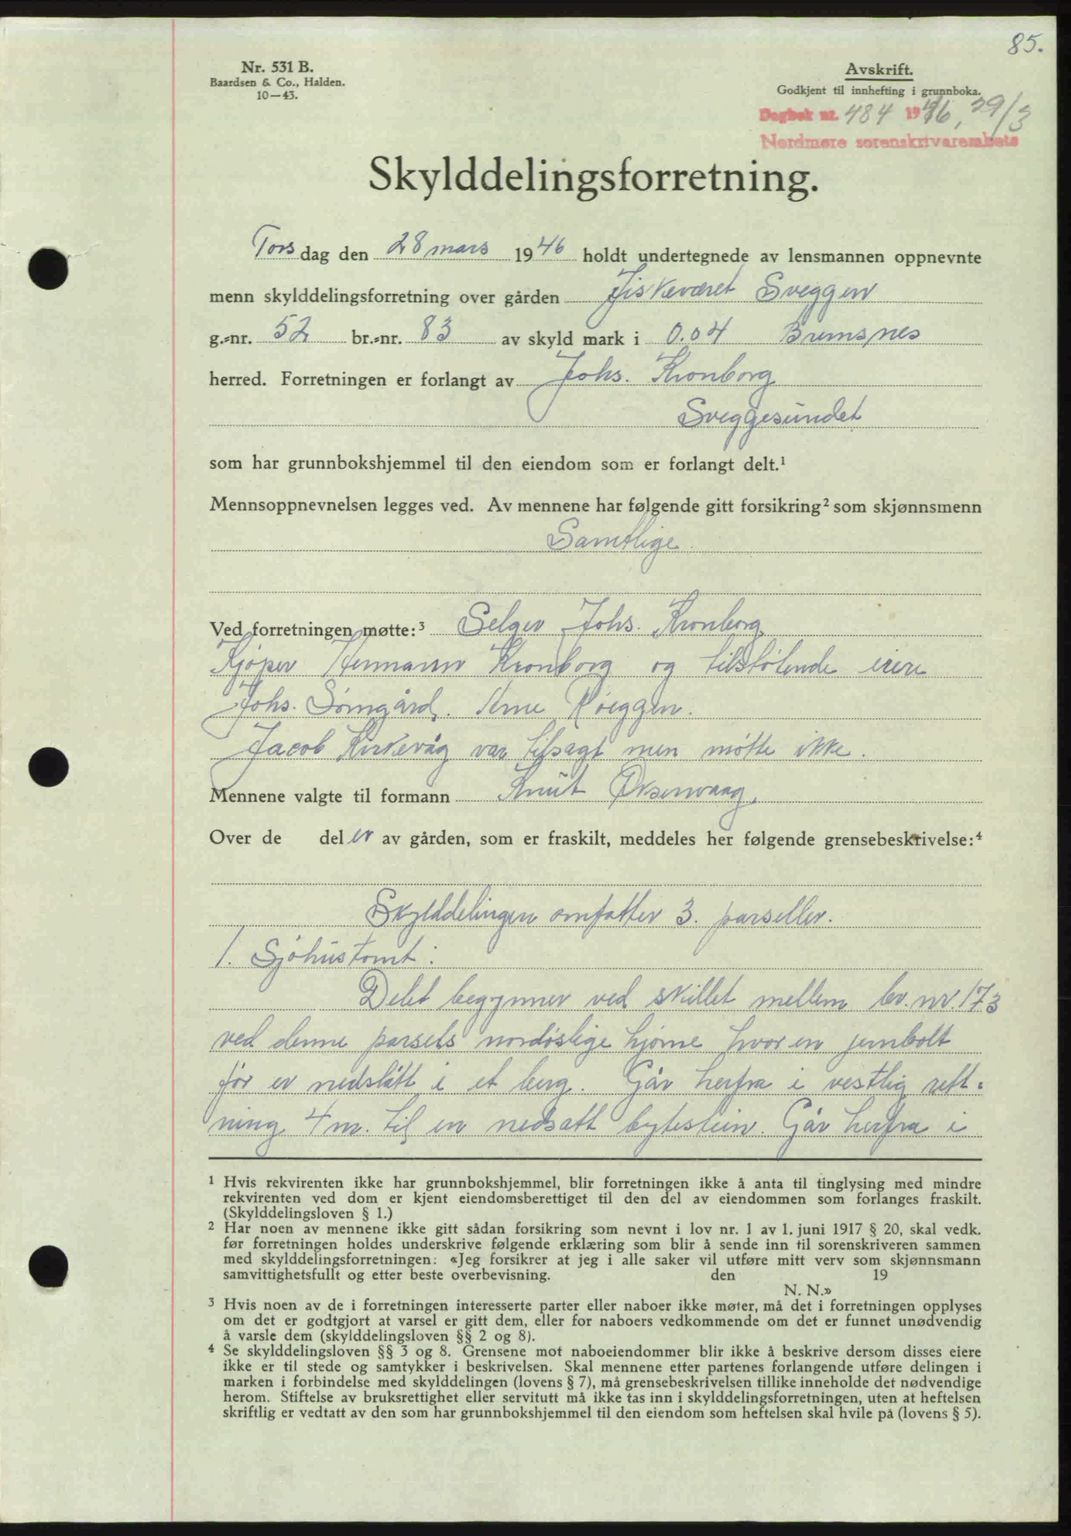 85.
Nr. 531 B.
Baardsen & Co., Halden.
10—43.
Avskrift.
Godkjent til innhefting i grunnboka.
Dagbok nr. 484 1946, 29/3
Nordmøre sorenskrivarembete
Skylddelingsforretning.
Torsdag den 28 mars 1946 holdt undertegnede av lensmannen oppnevnte
menn skylddelingsforretning over gården Fiskeværet Sveggen
g.-nr. 52 br.-nr. 83 av skyld mark i 0.04 Bremsnes
herred. Forretningen er forlangt av Johs. Kronborg
Sveggesundet
som har grunnbokshjemmel til den eiendom som er forlangt delt.¹
Mennsoppnevnelsen legges ved. Av mennene har følgende gitt forsikring² som skjønnsmenn
Samtlige.
Ved forretningen møtte:³ Selger Johs. Kronborg
Kjøper Hermann Kronborg og tilstøtende eiere
Johs. Sørngård. Arne
Jacob Kirkevåg var tilsagt men møtte ikke.
Mennene valgte til formann Knut Oksenvaag.
Over de deler av gården, som er fraskilt, meddeles her følgende grensebeskrivelse:⁴
Skylddelingen omfatter 3. parseller.
1. Sjøhustomt:
Delet begynner ved skillet mellem br. nr. 173
ved denne parsels nordøslige hjørne hvor en jernbolt
før er nedslått i et berg. Går herfra i vestlig rett-
ning 4 m. til en nedsatt bytestein. Går herfra i
¹ Hvis rekvirenten ikke har grunnbokshjemmel, blir forretningen ikke å anta til tinglysing med mindre
rekvirenten ved dom er kjent eiendomsberettiget til den del av eiendommen som forlanges fraskilt.
(Skylddelingsloven § 1.)
² Har noen av mennene ikke gitt sådan forsikring som nevnt i lov nr. 1 av 1. juni 1917 § 20, skal vedk.
før forretningen holdes underskrive følgende erklæring som blir å sende inn til sorenskriveren sammen
med skylddelingsforretningen: «Jeg forsikrer at jeg i alle saker vil utføre mitt verv som skjønnsmann
samvittighetsfullt og etter beste overbevisning. den 19
N. N.»
³ Hvis noen av de i forretningen interesserte parter eller naboer ikke møter, må det i forretningen opplyses
om det er godtgjort at varsel er gitt dem, eller for naboers vedkommende om det er funnet unødvendig
å varsle dem (skylddelingsloven §§ 2 og 8).
⁴ Se skylddelingsloven §§ 3 og 8. Grensene mot naboeiendommer blir ikke å beskrive dersom disses eiere
ikke er til stede og samtykker i beskrivelsen. Skal mennene etter partenes forlangende utføre delingen i
marken i forbindelse med skylddelingen (lovens § 7), må grensebeskrivelsen tillike inneholde det nødvendige
herom. Stiftelse av bruksrettighet eller servitutt må ikke tas inn i skylddelingsforretningen, uten at heftelsen
skriftlig er vedtatt av den som har grunnbokshjemmel til den eiendom som heftelsen skal hvile på (lovens § 5).